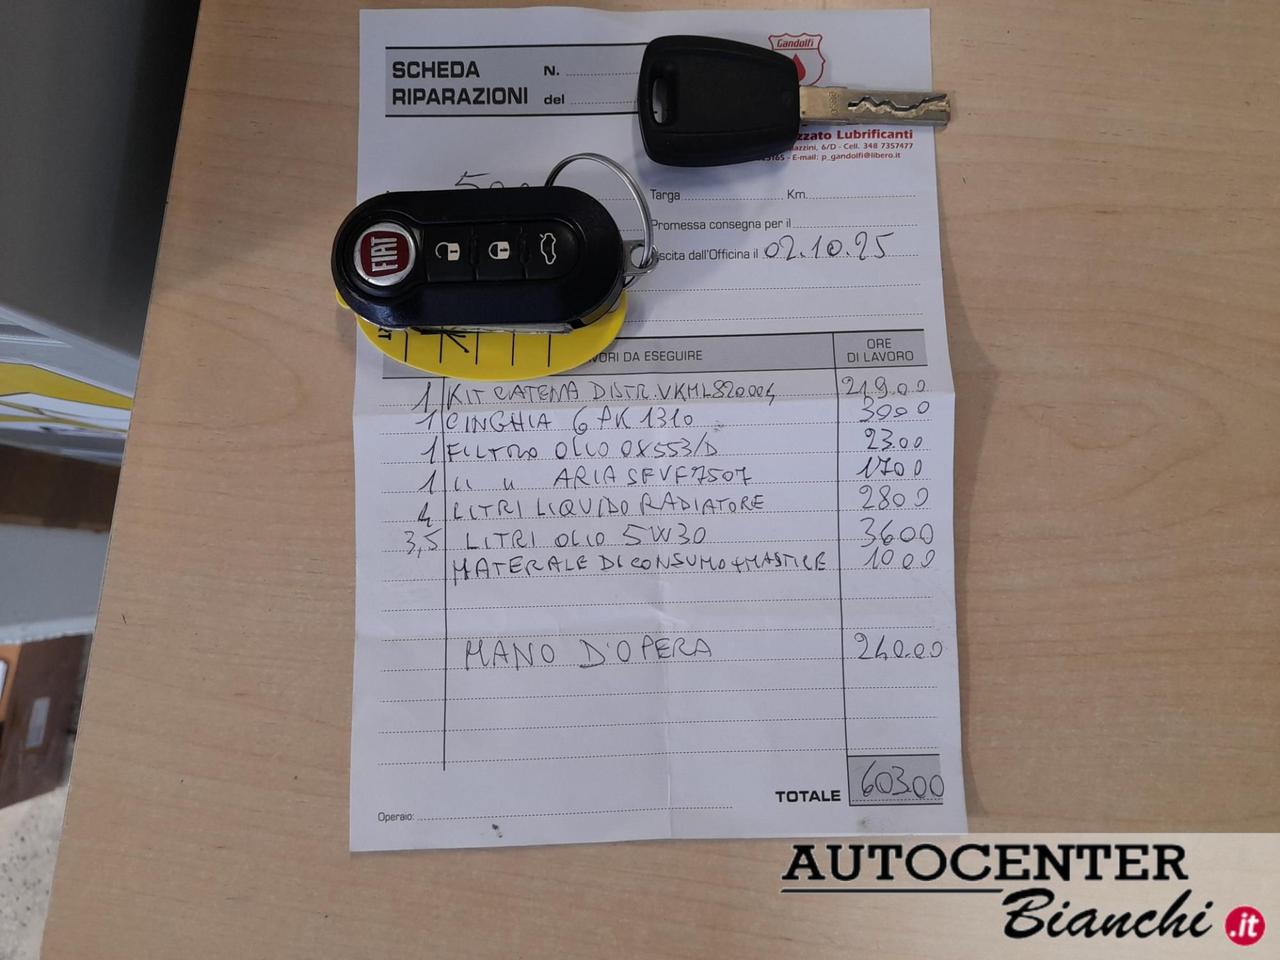 Gandolfi
SCHEDA
RIPARAZIONI
N.
del
zzato Lubrificanti
azzini, 6/D - Cell. 348 7357477
165 - E-mail: p_gandolfi@libero.it
Targa Km.
Promessa consegna per il
scita dall'Officina il 02.10.25
FIAT
VORI DA ESEGUIRE ORE DI LAVORO
1 KIT CATENA DISTR. VKML820004 219.00
1 CINGHIA 6PK1310 3000
1 FILTRO OLIO OX553/D 23.00
1 " " ARIA SFVF7507 1700
4 LITRI LIQUIDO RADIATORE 2800
3,5 LITRI OLIO 5W30 3600
MATERALE DI CONSUMO + MASTICE 1000
MANO D'OPERA 240.00
TOTALE 603.00
Operaio:
AUTOCENTER
Bianchi.it